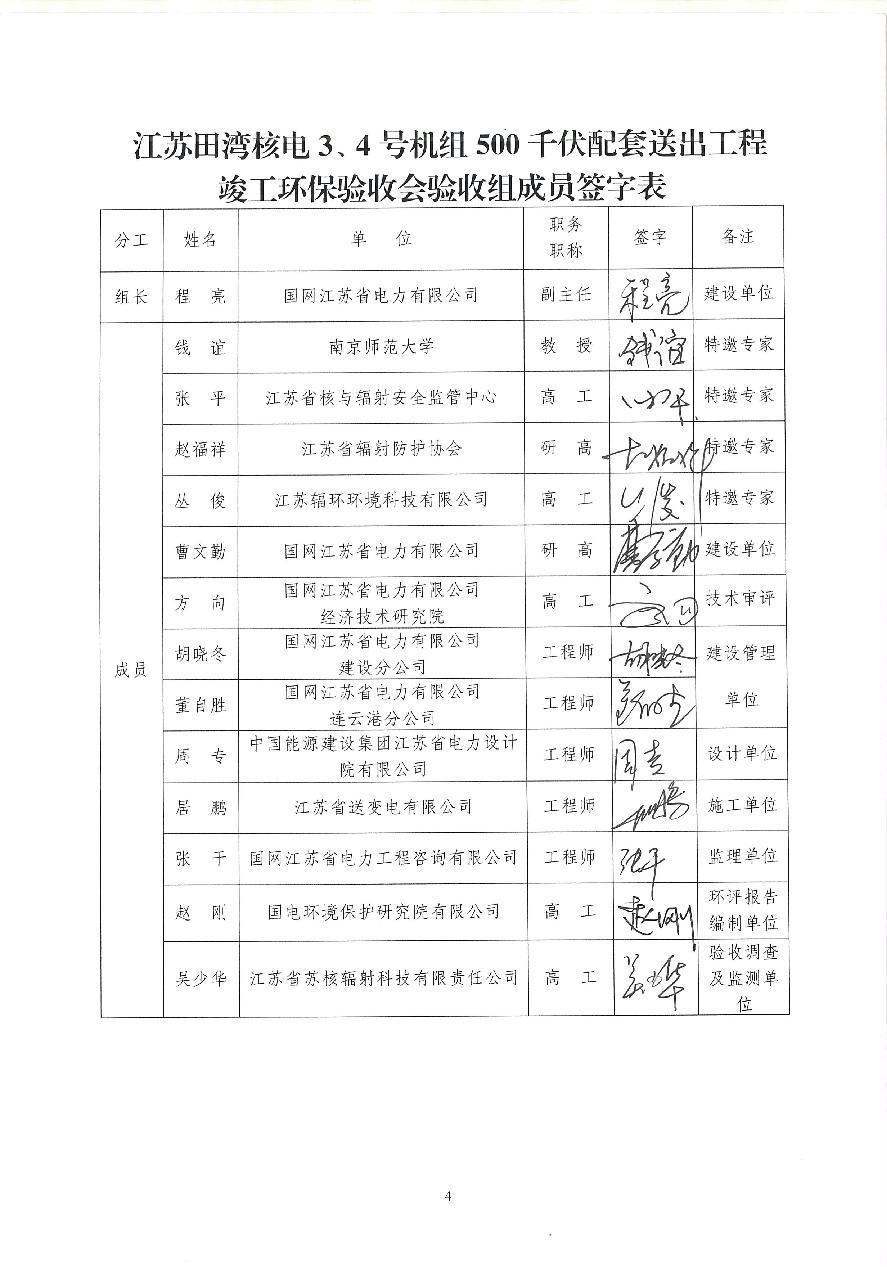 江苏田湾核电3、4号机组500千伏配套送出工程
竣工环保验收会验收组成员签字表
分工 姓名 单 位 职务 职称 签字 备注
组长 程 亮 国网江苏省电力有限公司 副主任 程亮 建设单位
成员
钱 谊 南京师范大学 教 授 钱谊 特邀专家
张 平 江苏省核与辐射安全监管中心 高 工 特邀专家
赵福祥 江苏省辐射防护协会 研 高 特邀专家
丛 俊 江苏辐环环境科技有限公司 高 工 特邀专家
曹文勤 国网江苏省电力有限公司 研 高 建设单位
方 向 国网江苏省电力有限公司 高 工 技术审评
经济技术研究院
胡晓冬 国网江苏省电力有限公司 工程师 胡晓冬 建设管理
建设分公司
董自胜 国网江苏省电力有限公司 工程师 单位
连云港分公司
周 专 中国能源建设集团江苏省电力设计 工程师 周专 设计单位
院有限公司
居 鹏 江苏省送变电有限公司 工程师 施工单位
张 干 国网江苏省电力工程咨询有限公司 工程师 张干 监理单位
赵 刚 国电环境保护研究院有限公司 高 工 赵刚 环评报告
编制单位
吴少华 江苏省苏核辐射科技有限责任公司 高 工 验收调查
及监测单
位
4